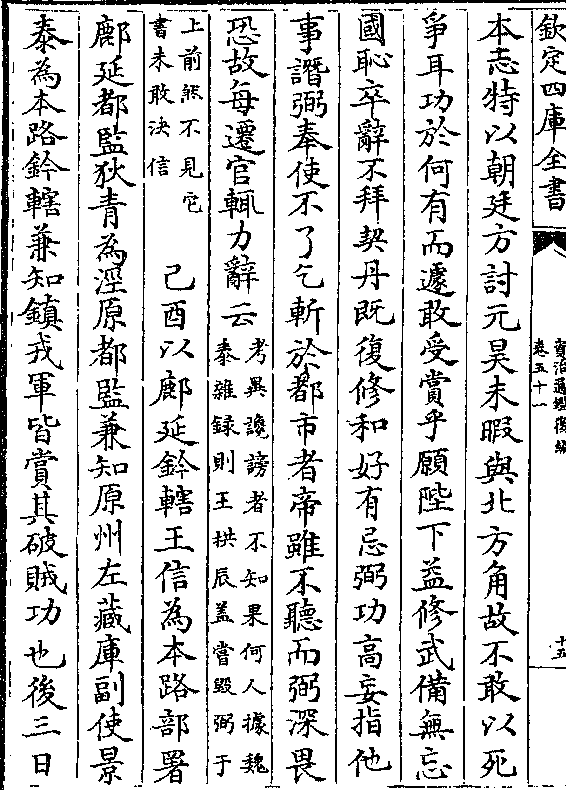 欽定四庫全書
資治通鑑後編
卷五十一
十五
本志特以朝廷方討元昊未暇與北方角故不敢以死
爭耳功於何有而遽敢受賞乎願陛下益修武備無忘
國恥卒辭不拜契丹既復修和好有忌弼功高妄指他
事譖弼奉使不了乞斬於都市者帝雖不聽而弼深畏
恐故每遷官輒力辭云
考異讒謗者不知果何人據魏
泰雜録則王拱辰盖嘗毀弼于
上前然不見它
書未敢決信
己酉以鄜延鈐轄王信為本路部署
鄜延都監狄青為涇原都監兼知原州左藏庫副使景
泰為本路鈐轄兼知鎮戎軍皆賞其破賊功也後三日